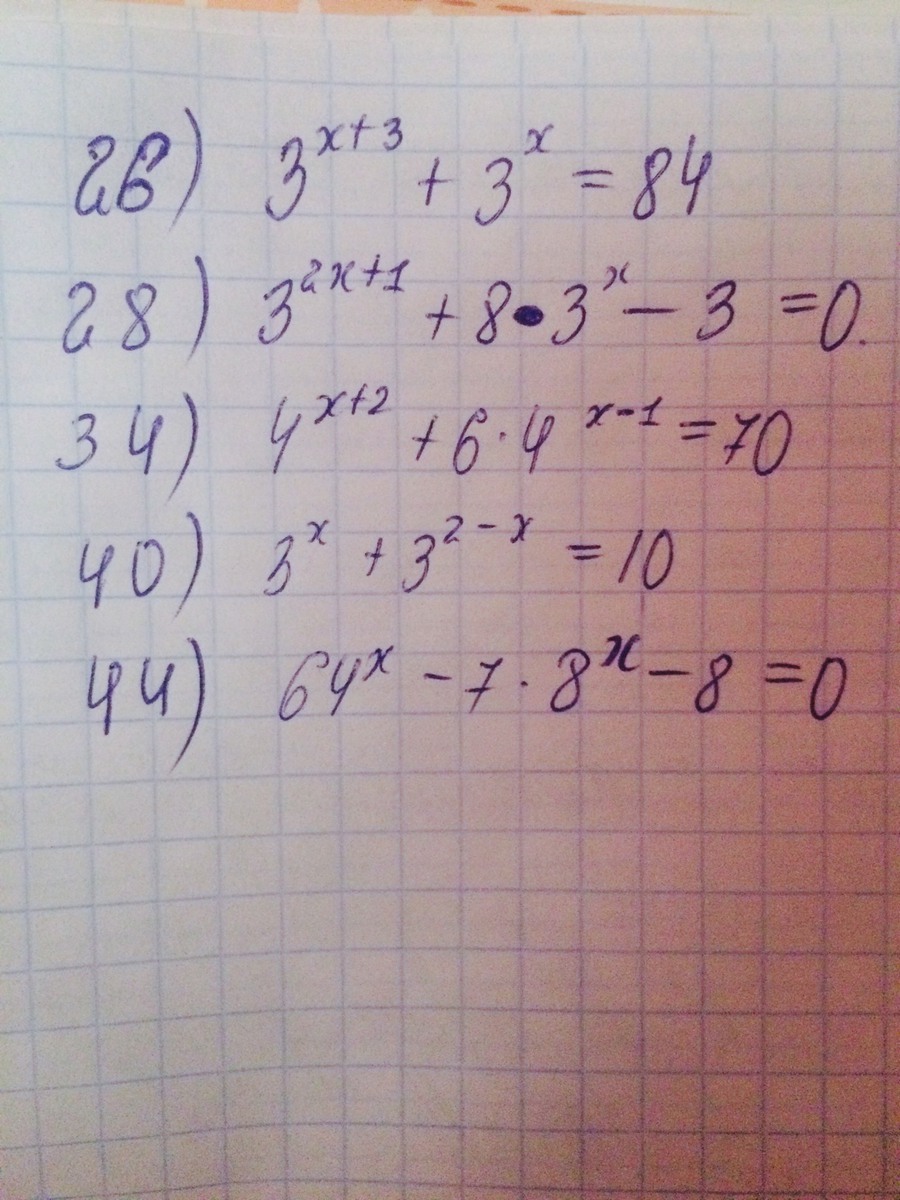 26) 3^{x+3} + 3^x = 84
28) 3^{2x+1} + 8•3^x - 3 = 0.
34) 4^{x+2} + 6·4^{x-1} = 70
40) 3^x + 3^{2-x} = 10
44) 64^x - 7·8^x - 8 = 0